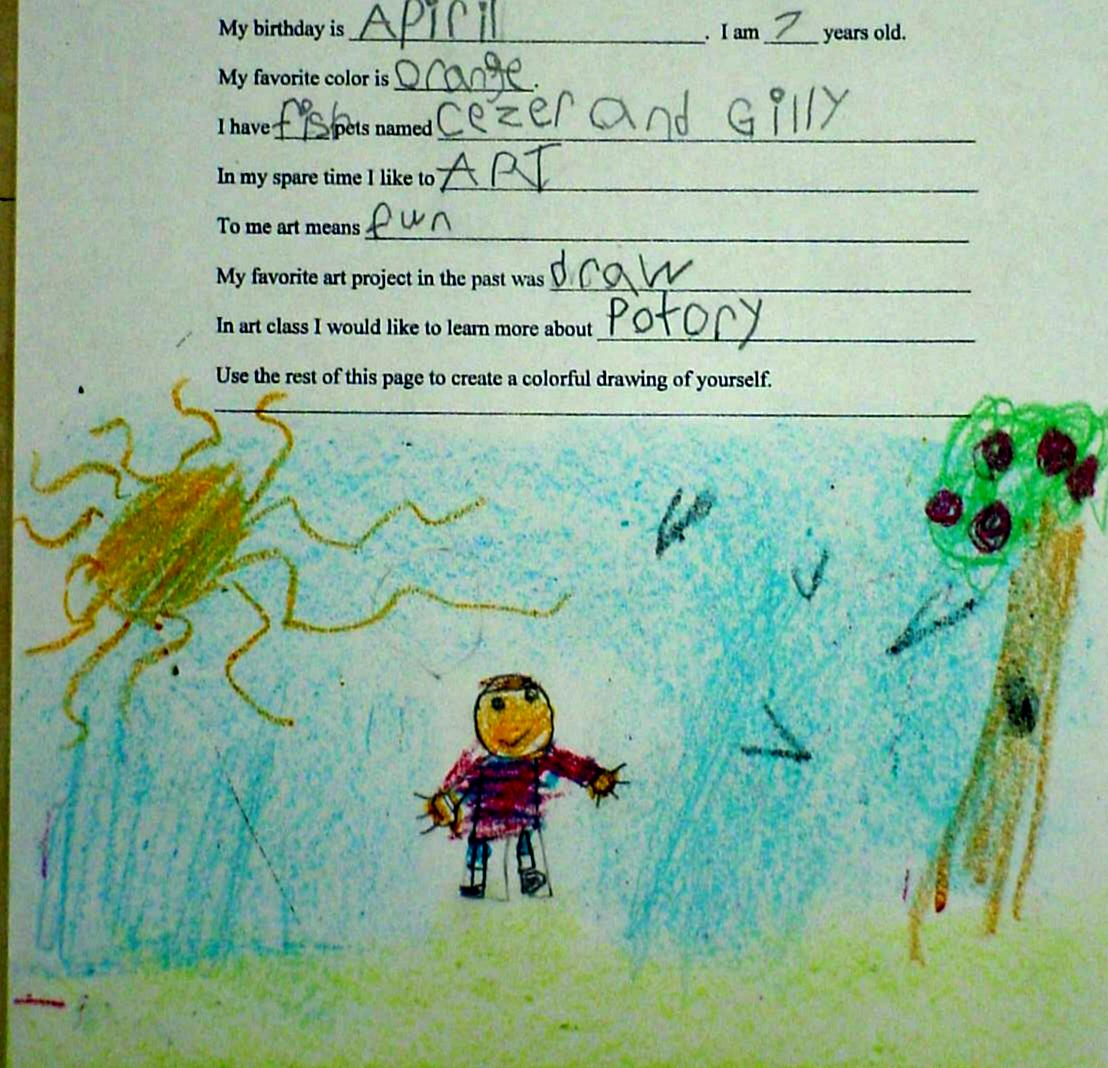 My birthday is APiril. I am 7 years old.
My favorite color is orange.
I have fish pets named Cezer and Gilly
In my spare time I like to ART
To me art means fun
My favorite art project in the past was draw
In art class I would like to learn more about Potory
Use the rest of this page to create a colorful drawing of yourself.